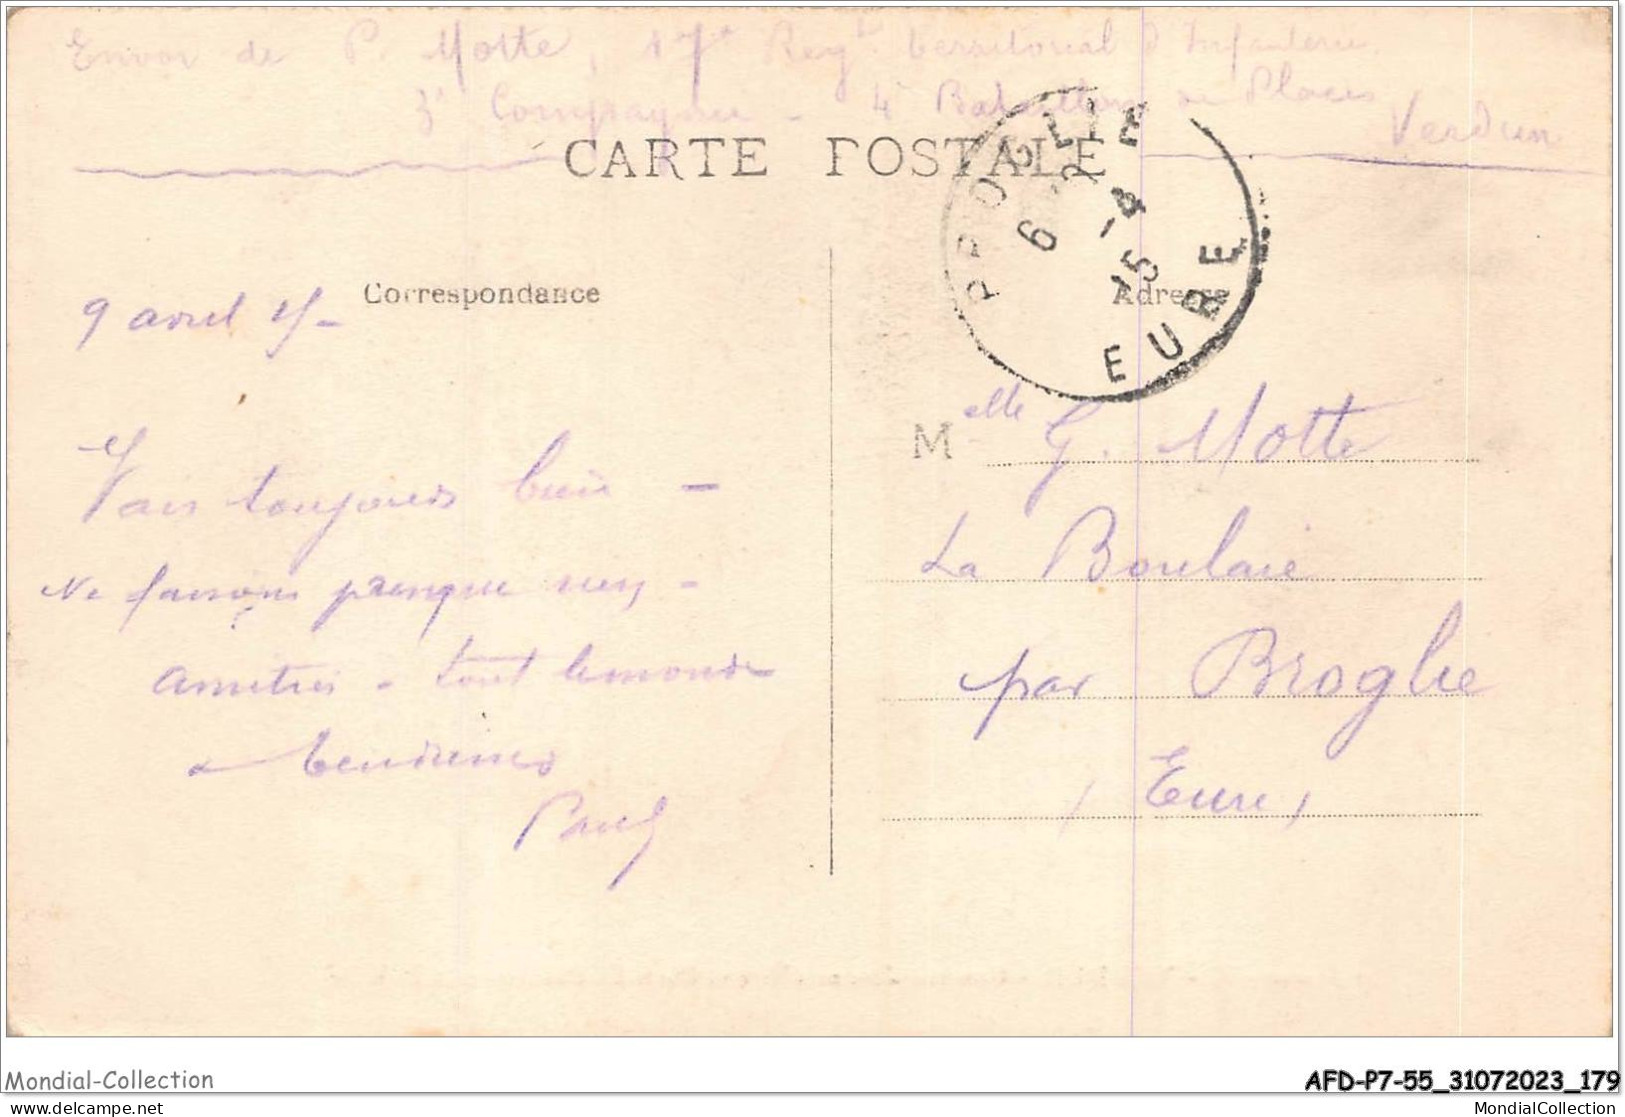 Envoi de P. Motte, 17e Regt territorial d'Infanterie.
3e Compagnie - 4e Bataillon de Places
Verdun
CARTE POSTALE
BROGLIE
6
-4
15
EURE
Correspondance
Adresse
9 avril 15-
Vais toujours bien -
Ne faisons presque rien -
Amitiés - tout le monde
& tendresses
Paul
Melle G. Motte
La Boulaie
par Broglie
(Eure)
Mondial-Collection
AFD-P7-55_31072023_179
delcampe.net
MondialCollection